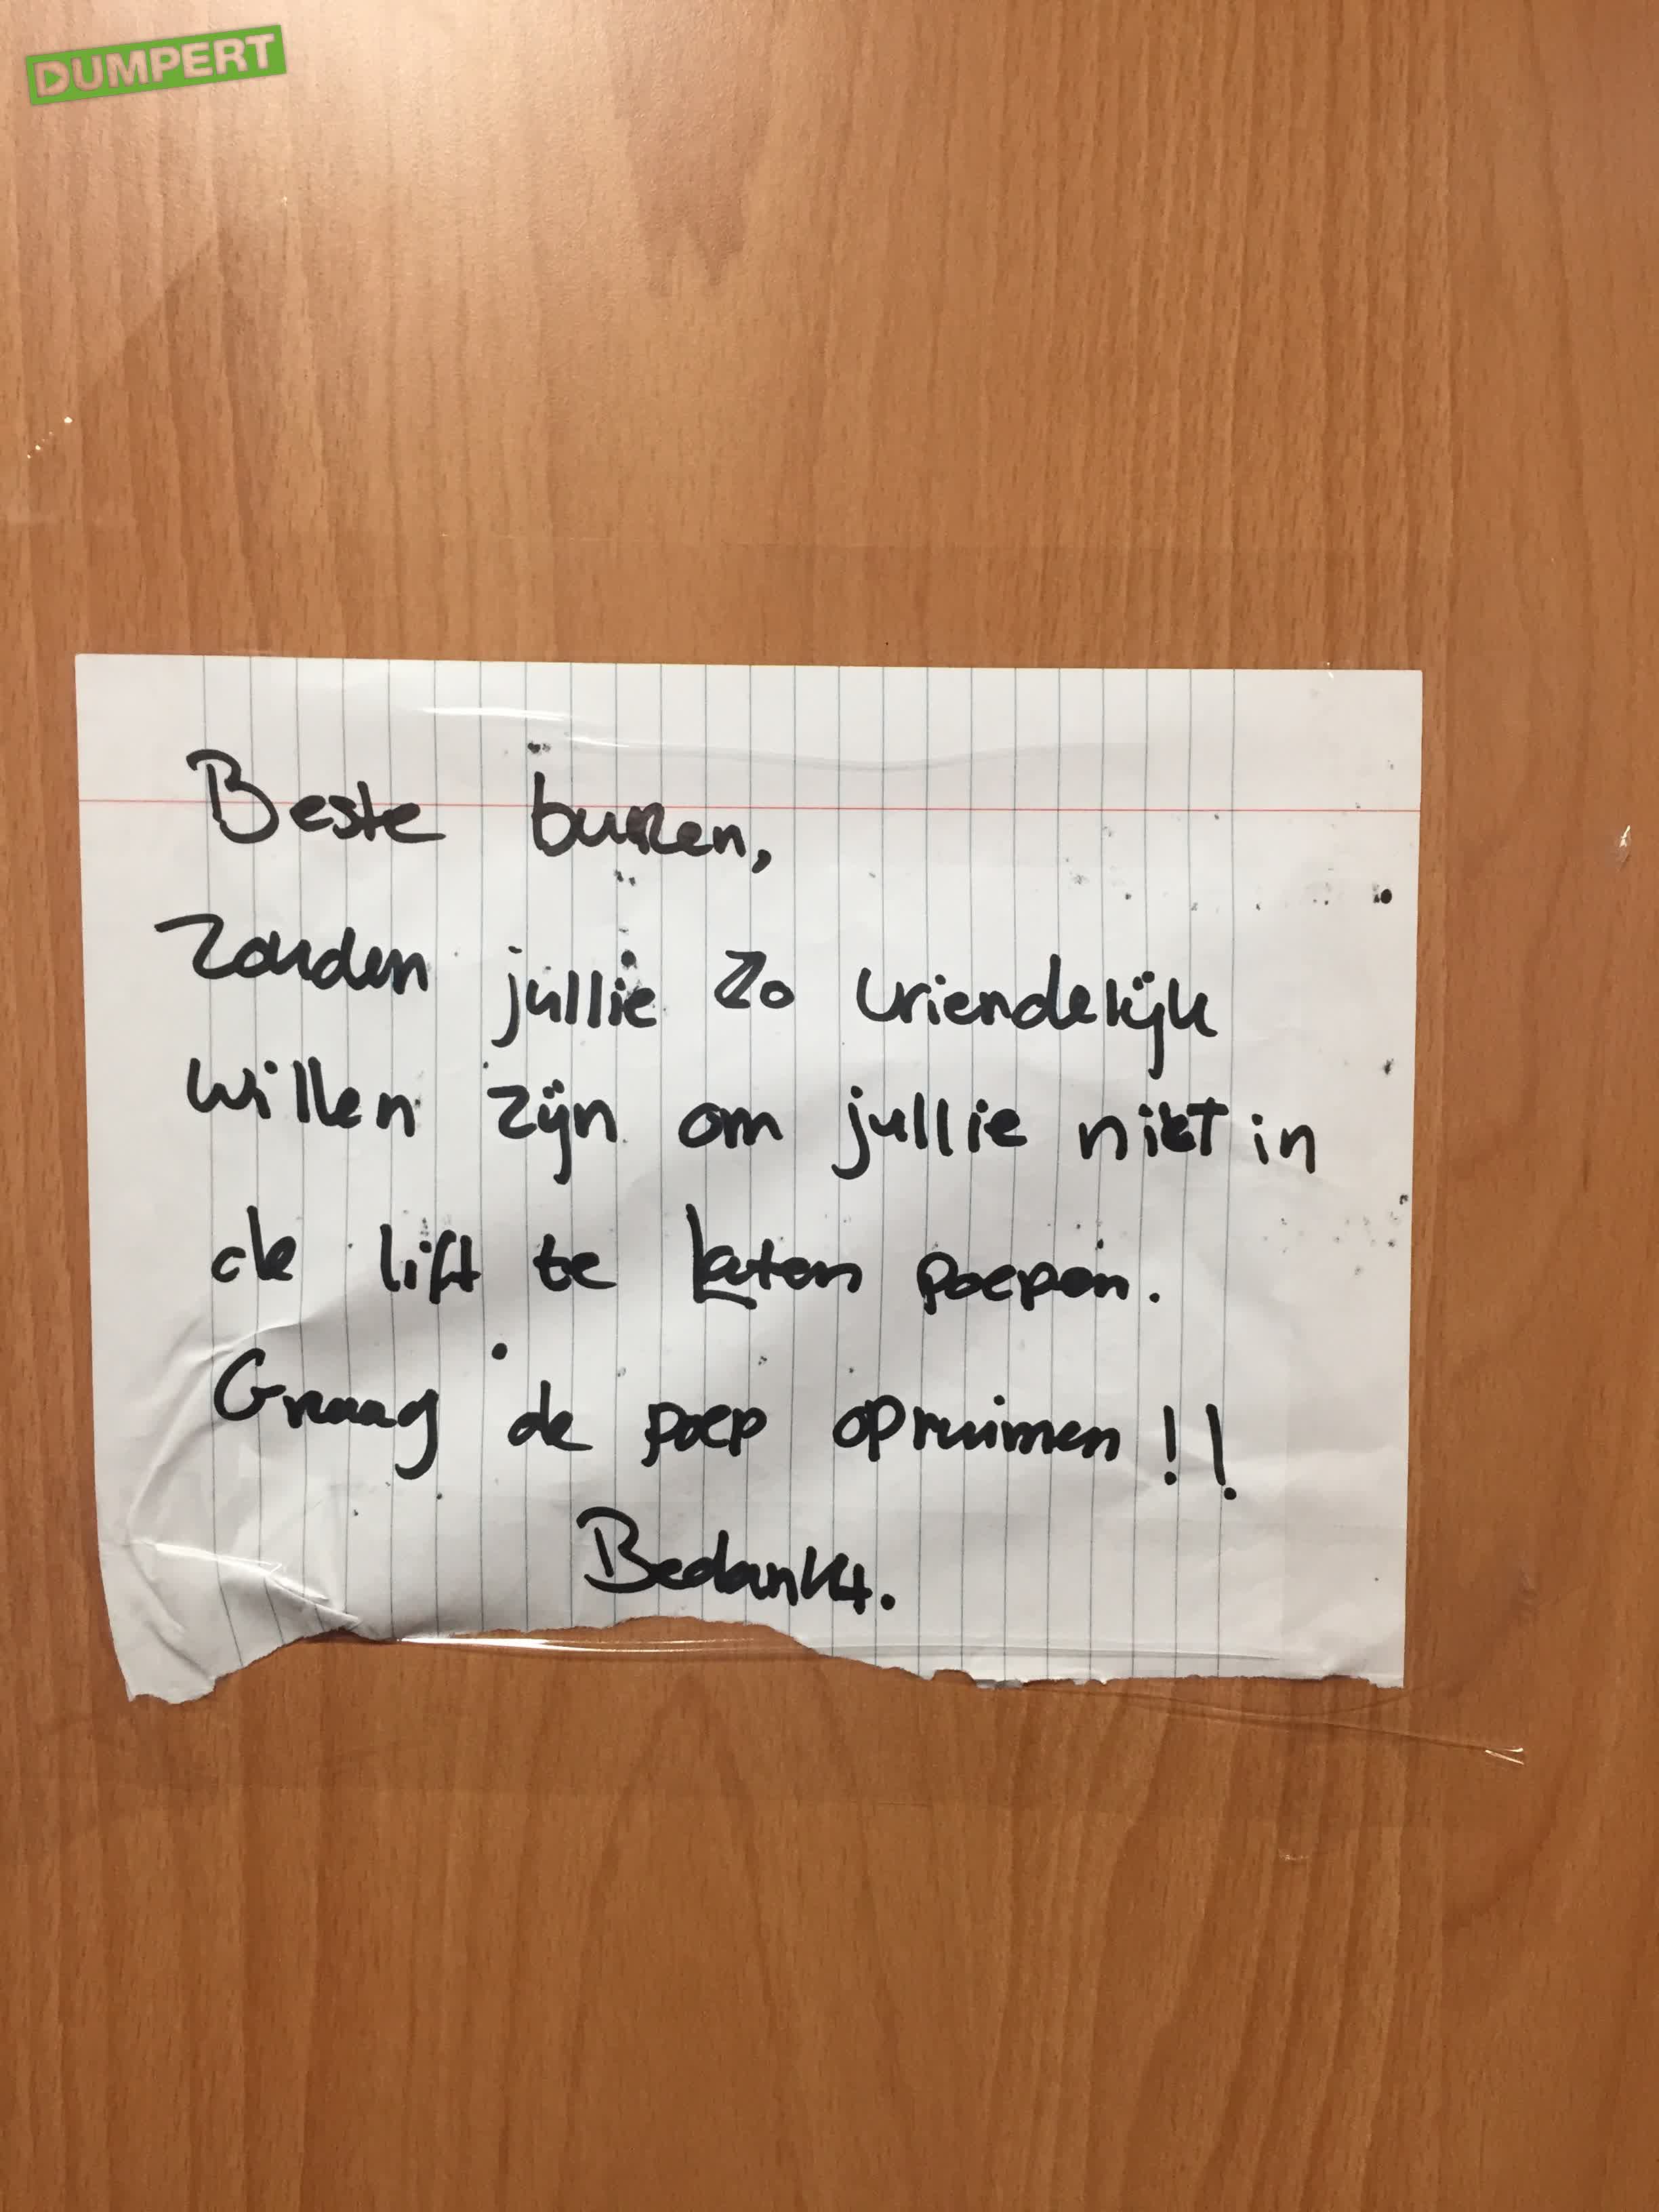 DUMPERT
Beste buren,
Zouden jullie zo vriendelijk
willen zijn om jullie niet in
de lift te laten poepen.
Graag de poep opruimen!!
Bedankt.